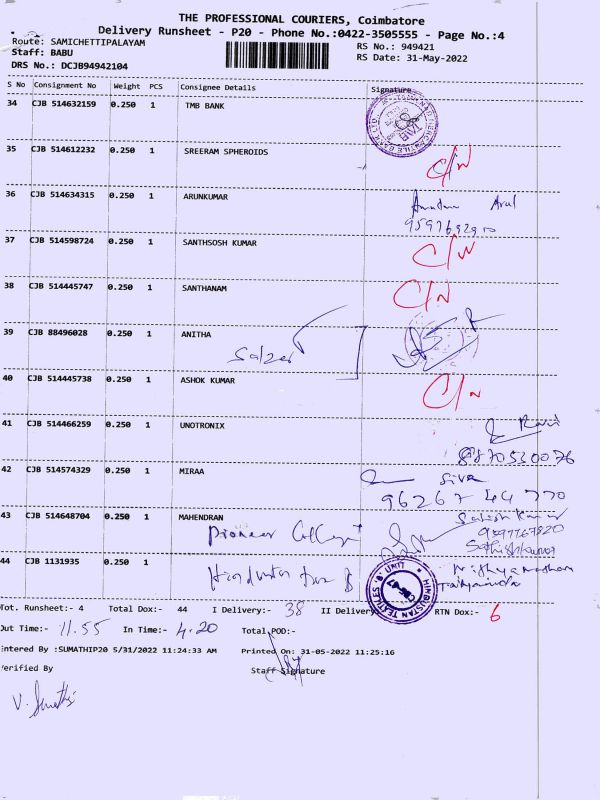 THE PROFESSIONAL COURIERS, Coimbatore
Delivery Runsheet - P20 - Phone No.:0422-3505555 - Page No.:4
Route: SAMICHETTIPALAYAM
RS No.: 949421
Staff: BABU
RS Date: 31-May-2022
DRS No.: DCJB94942104
S No Consignment No Weight PCS Consignee Details Signature
34 CJB 514632159 0.250 1 TMB BANK
35 CJB 514612232 0.250 1 SREERAM SPHEROIDS C/N
36 CJB 514634315 0.250 1 ARUNKUMAR
37 CJB 514598724 0.250 1 SANTHSOSH KUMAR C/N
38 CJB 514445747 0.250 1 SANTHANAM C/N
39 CJB 88496028 0.250 1 ANITHA
Salzer
40 CJB 514445738 0.250 1 ASHOK KUMAR C/N
41 CJB 514466259 0.250 1 UNOTRONIX Ravi
8870530076
42 CJB 514574329 0.250 1 MIRAA Siva
96267 44770
43 CJB 514648704 0.250 1 MAHENDRAN Sathish Kumar
Pioneer College
Sathishkumar
44 CJB 1131935 0.250 1
HINDUSTAN TEXTILES 'B' UNIT
CBE-47
Tot. Runsheet:- 4 Total Dox:- 44 I Delivery:- 38 II Delivery RTN Dox:- 6
Out Time:- 11.55 In Time:- 4.20 Total POD:-
Entered By :SUMATHIP20 5/31/2022 11:24:33 AM Printed On: 31-05-2022 11:25:16
Verified By Staff Signature